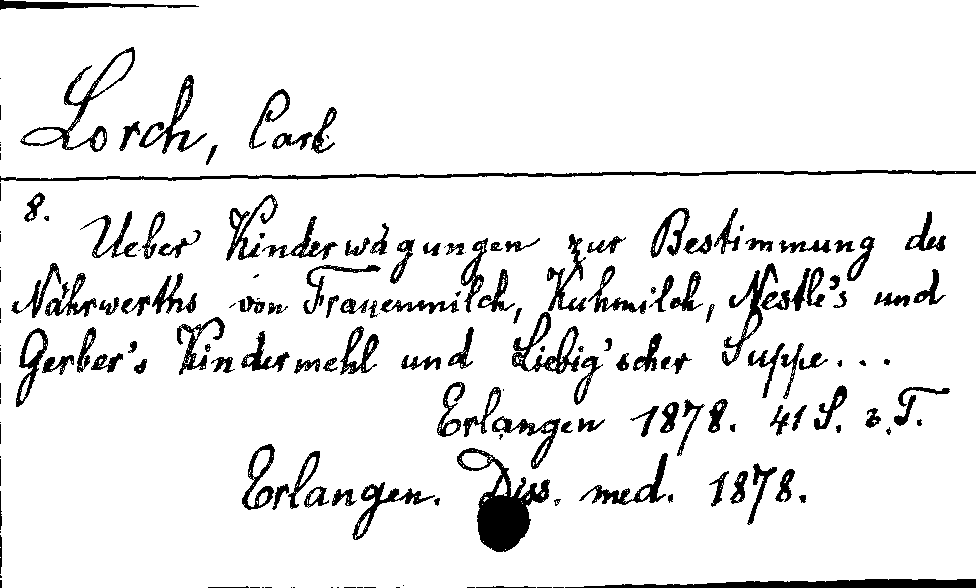 Lorch, Carl
8.
Ueber Kinderwägungen zur Bestimmung des
Nährwerths von Frauenmilch, Kuhmilch, Nestle's und
Gerber's Kindermehl und Liebig'scher Suppe...
Erlangen 1878. 41 S. 2 T.
Erlangen. Diss. med. 1878.